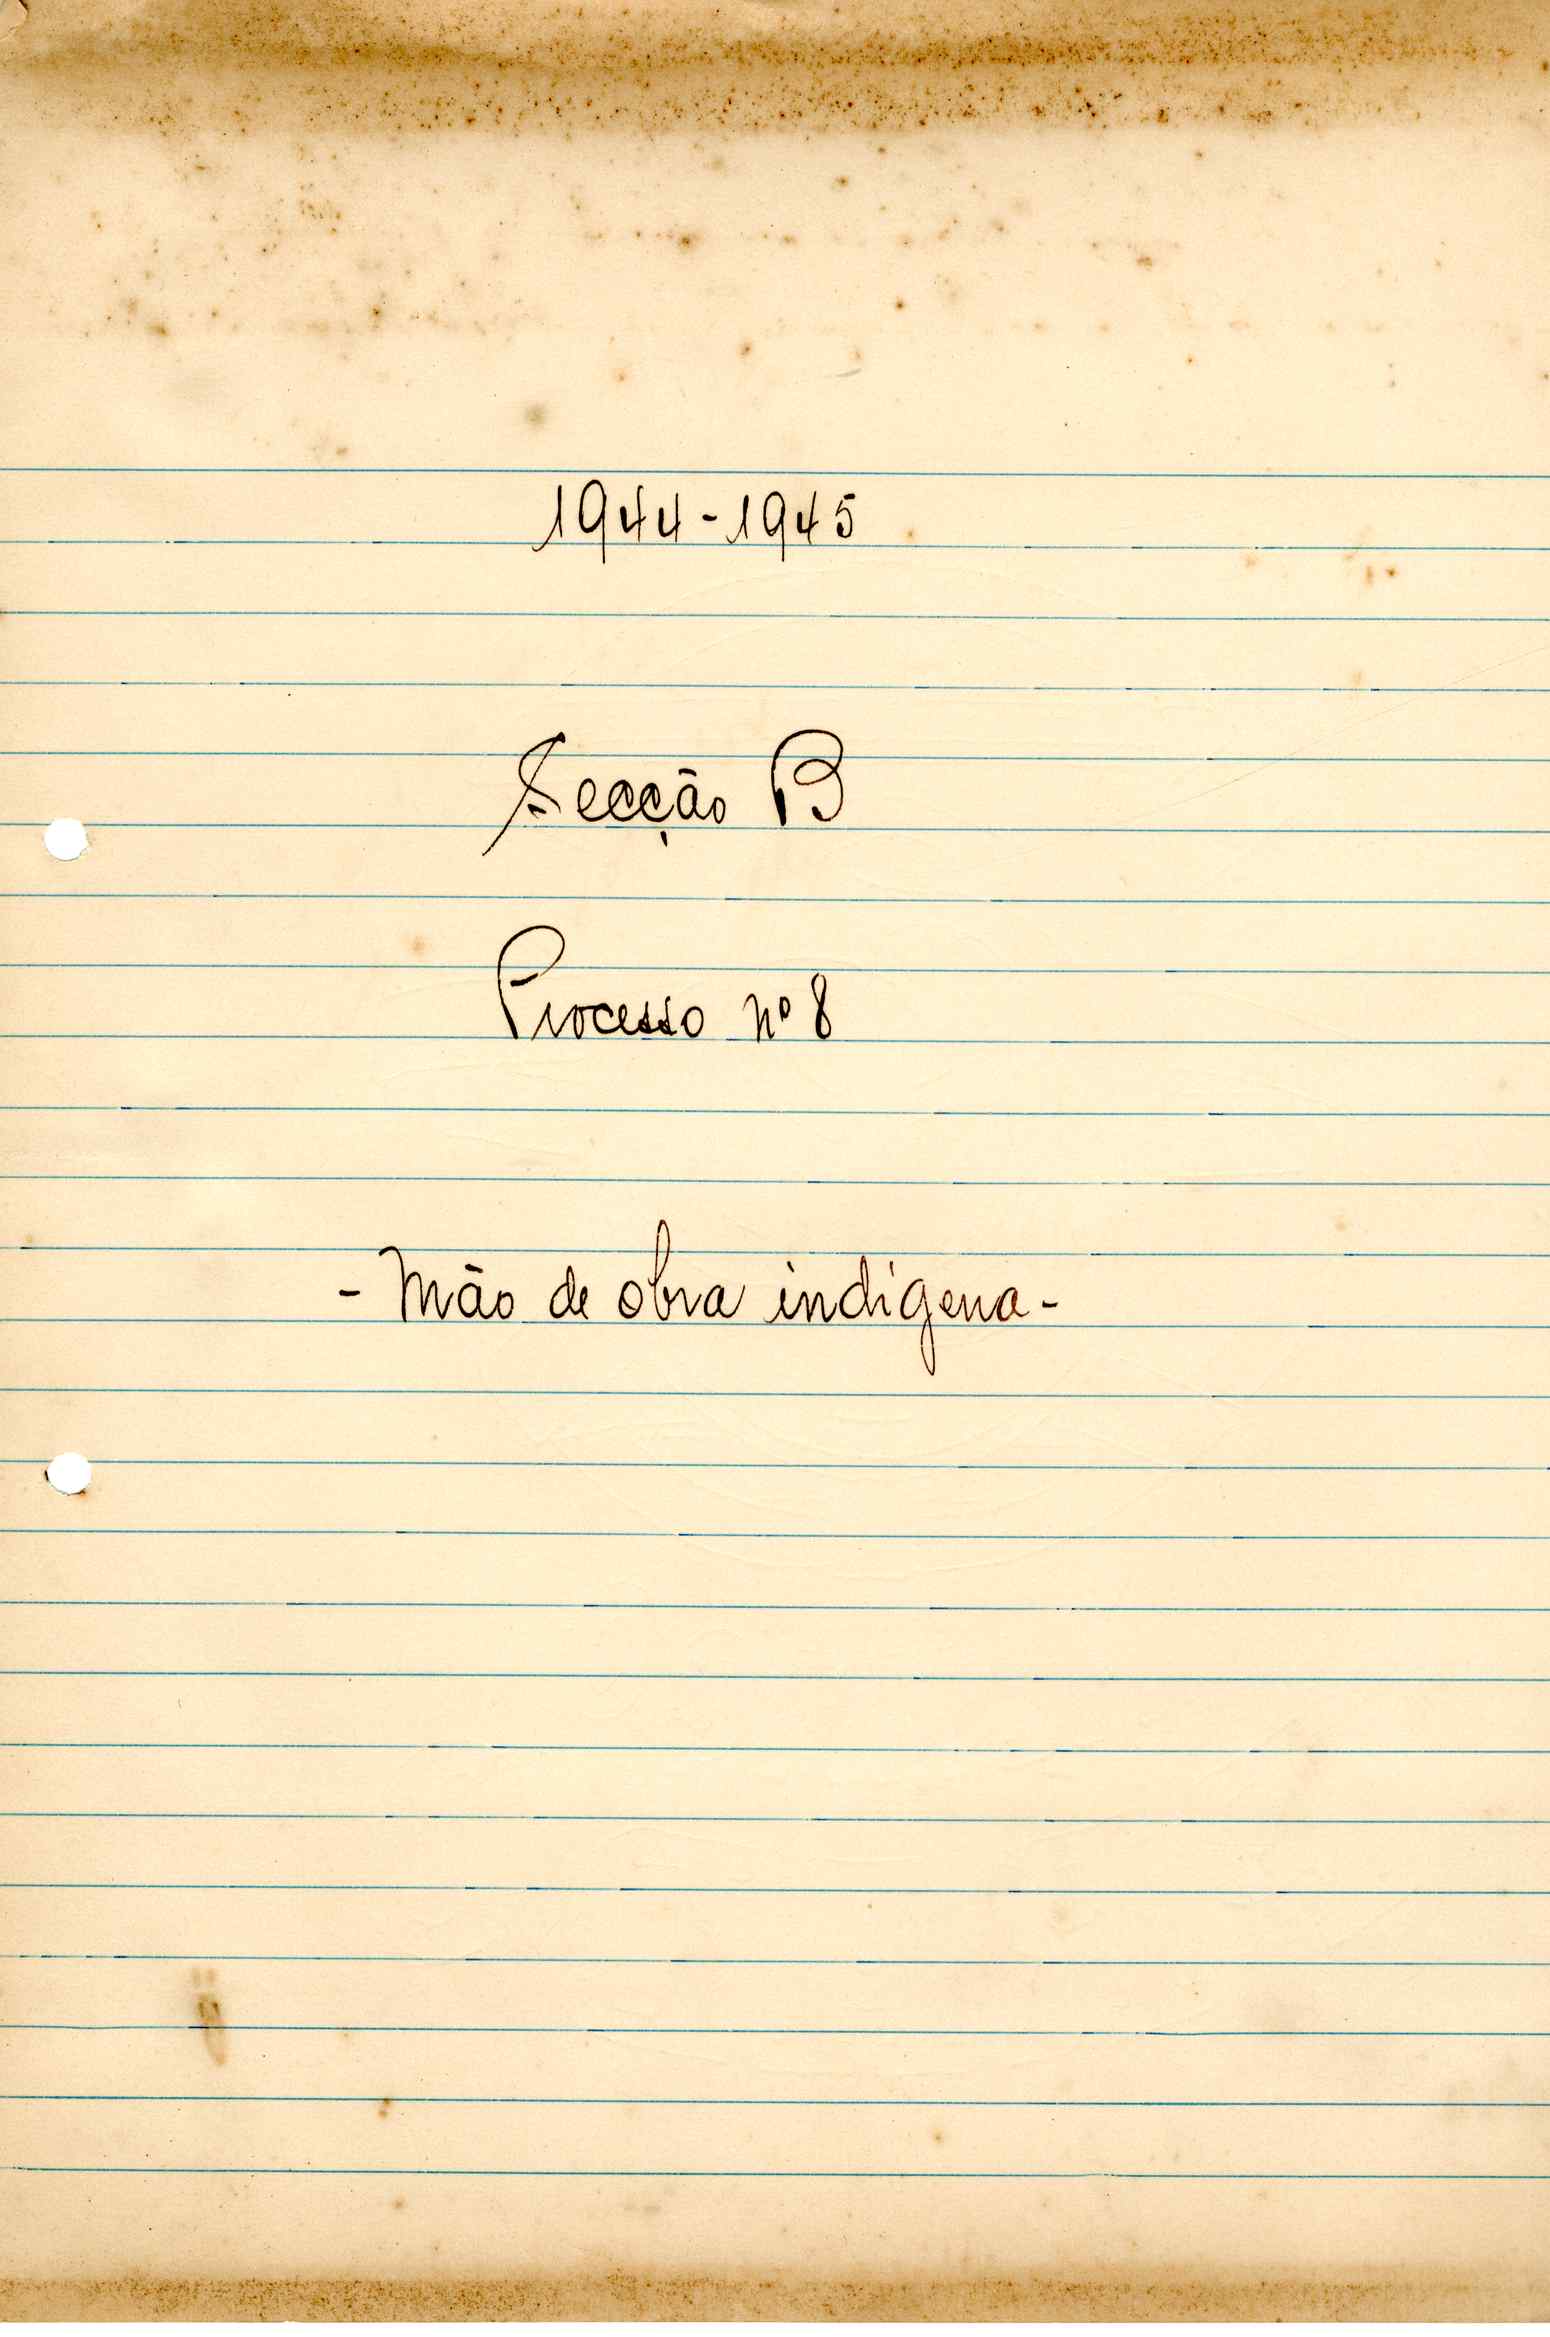 1944-1945
Secção B
Processo nº 8
- Mão de obra indígena -